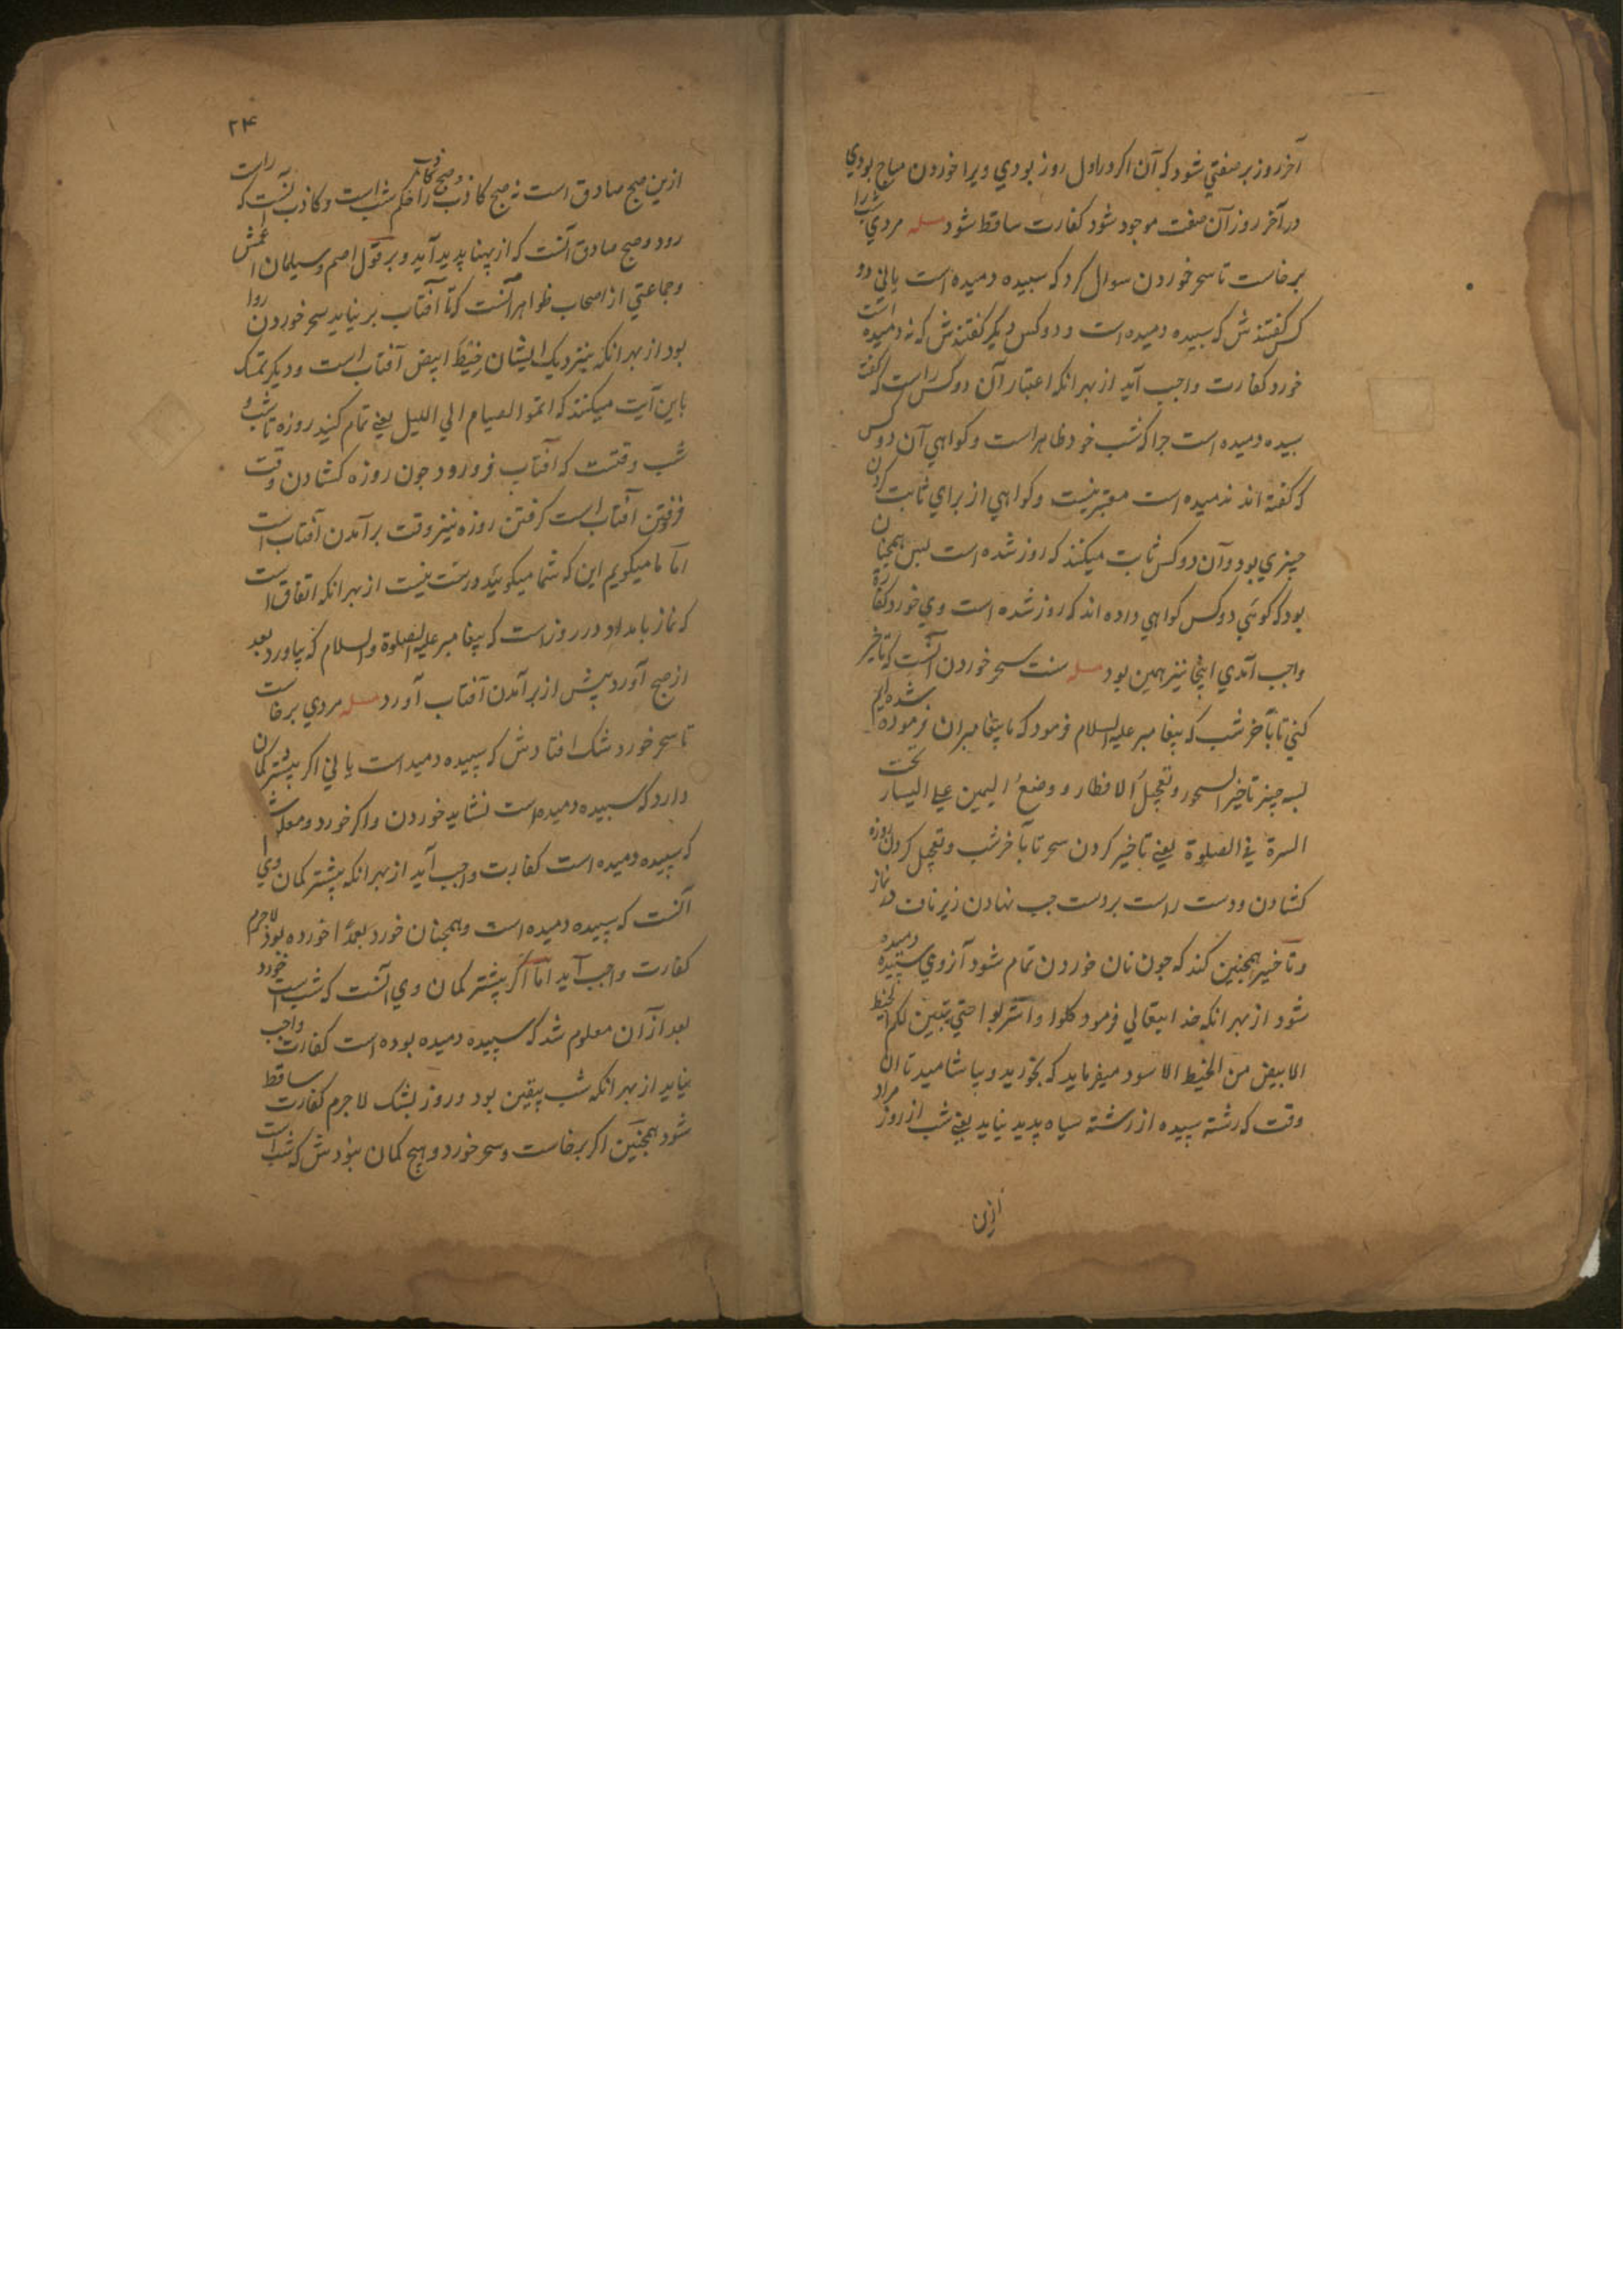 آخر روز بر صفتي شود كه آن اكر در اول روز بودي ويرا خوردن مباح بودي
در آخر روز آن صفت موجود شود كفارت ساقط شود مسله مردي شب را
برخاست تا سحر خوردن سوال كرد كه سبيده دميده است يا ني دو
كس كفتندش كه سبيده دميده است و دو كس ديكر كفتندش كه نه دميده است
خورد كفارت واجب آيد از بهر انكه اعتبار آن دو كس راست كه كفت
سبيده دميده است جرا كه شب خود ظاهر است و كواهي آن دو كس
كه كفته اند ندميده است معتبر نيست و كواهي از براي ثابت كردن
جيزي بود و آن دو كس ثابت ميكنند كه روز شده است بس همجنان
بود كه كوئي دو كس كواهي داده اند كه روز شده است وي خورد كفارة
واجب آمدي اينجا نيز همين بود مسله سنت سحر خوردن آنست كه تاخير
كني تا بآخر شب كه پيغامبر عليه السلام فرمود كه ما پيغامبران فرموده شده ايم
بسه جيز تاخير السحور و تعجيل الافطار و وضع اليمين علي اليسار تحت
السرة في الصلوة يعني تاخير كردن سحر تا بآخر شب و تعجيل كردن روزه
كشادن و دست راست بر دست جب نهادن زير ناف در نماز
و تاخير همجنين كند كه جون نان خوردن تمام شود آن روي سبيده دميده
شود از بهر انكه خدايتعالي فرمود كلوا واشربوا حتي يتبين لكم الخيط
الابيض من الخيط الاسود ميفرمايد كه بخوريد و بياشاميد تا ان
وقت كه رشته سبيده از رشته سياه پديد نيايد يعني شب از روز مراد
ازين
٢۴
ازين صبح صادق است نه صبح كاذب و صبح كاذب را حكم شب است و كاذب آنست كه راست
رود و صبح صادق آنست كه از پهنا پديد آيد و بر قول اصم و سليمان اعمش
و جماعتي از اصحاب ظواهر آنست كه تا آفتاب بر نيايد سحر خوردن روا
بود از بهر انكه بنزديك ايشان خيط ابيض آفتاب است و ديكر تمسك
باين آيت ميكنند كه اتموا الصيام الي الليل يعني تمام كنيد روزه تا شب و
شب وقتست كه آفتاب فرو رود جون روزه كشادن وقت
فرو رفتن آفتاب است كرفتن روزه نيز وقت برآمدن آفتاب است
اما ما ميكويم اين كه شما ميكوييد درست نيست از بهر انكه اتفاق است
كه نماز بامداد در روز است كه پيغامبر عليه الصلوة والسلام كه بياورد بعد
از صبح آورد پيش از برآمدن آفتاب آورد مسله مردي برخاست
تا سحر خورد شك افتادش كه سپيده دميد است يا ني اكر بيشتر كمان
دارد كه سبيده دميده است نشايد خوردن و اكر خورد و معلوم شد
كه سپيده دميده است كفارت واجب آيد از بهر انكه بيشتر كمان وي
آنست كه سپيده دميده است و همجنان خورد بعمدا خورده بود لاجرم
كفارت واجب آيد اما اكر بيشتر كمان وي آنست كه شب است خورد
بعد از آن معلوم شد كه سپيده دميده بوده است كفارت واجب
نيايد از بهر انكه شب بيقين بود و روز بشك لاجرم كفارت ساقط
شود همجنين اكر برخاست و سحر خورد و هيج كمان نبودش كه شب است